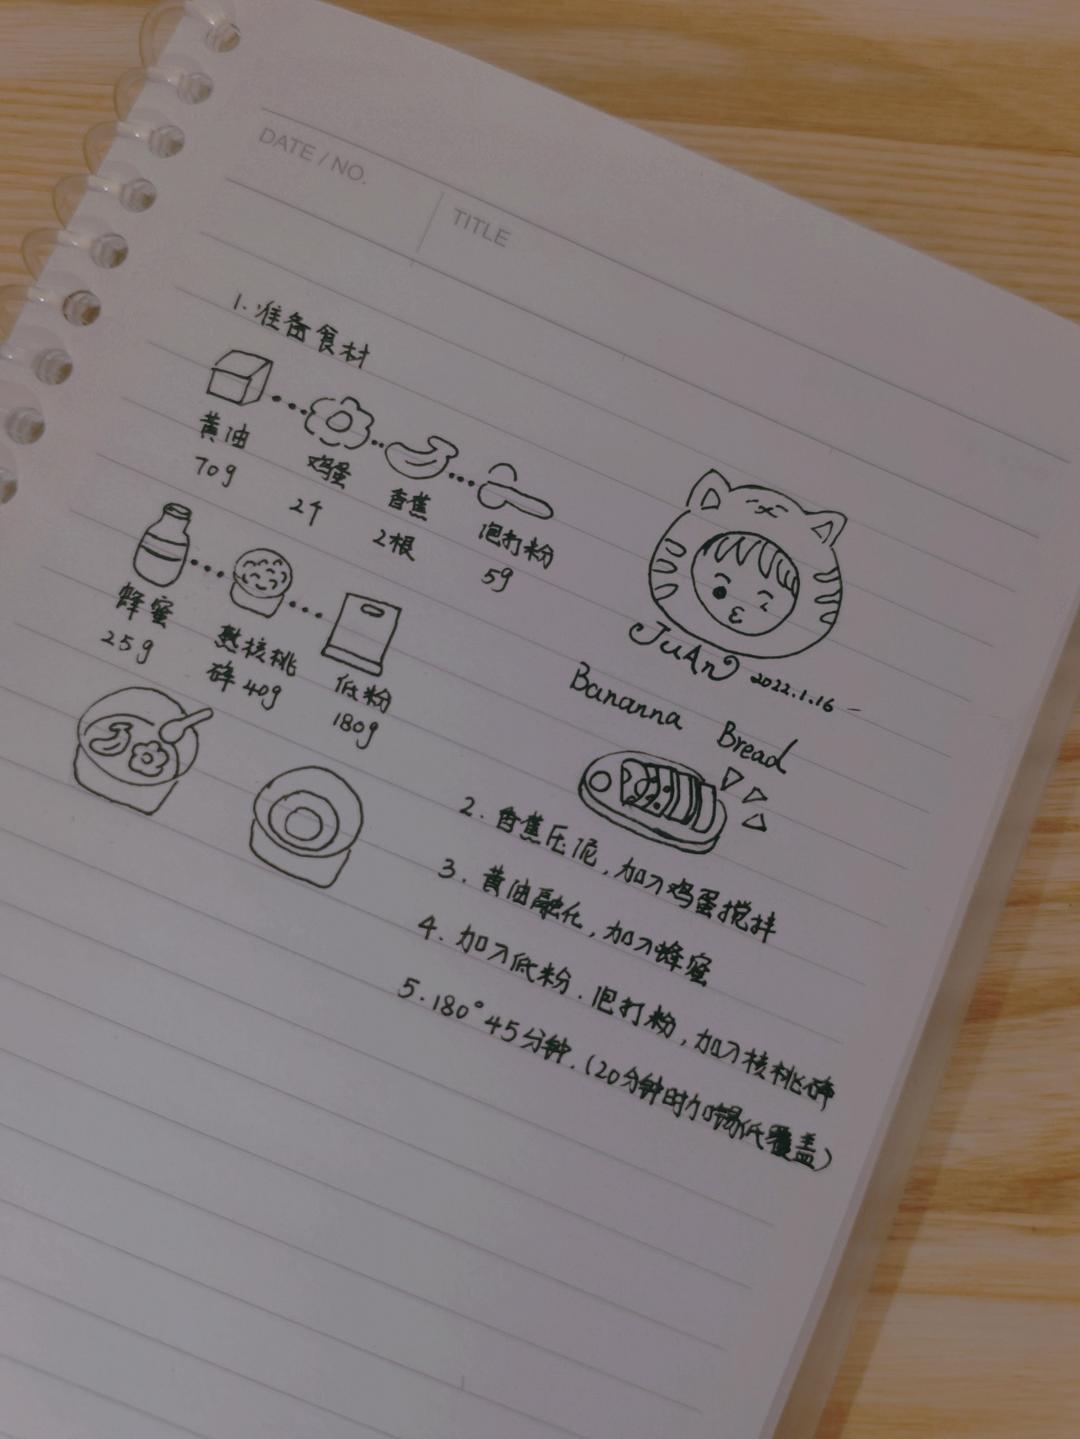 DATE / NO.
TITLE
1. 准备食材
黄油 鸡蛋 香蕉 泡打粉
70g 2个 2根 5g
蜂蜜 熟核桃碎 低粉
25g 40g 180g
JuAn 2022.1.16
Bananna Bread
2. 香蕉压泥,加入鸡蛋搅拌
3. 黄油融化,加入蜂蜜
4. 加入低粉.泡打粉,加入核桃碎
5. 180° 45分钟.(20分钟时加锡低覆盖)